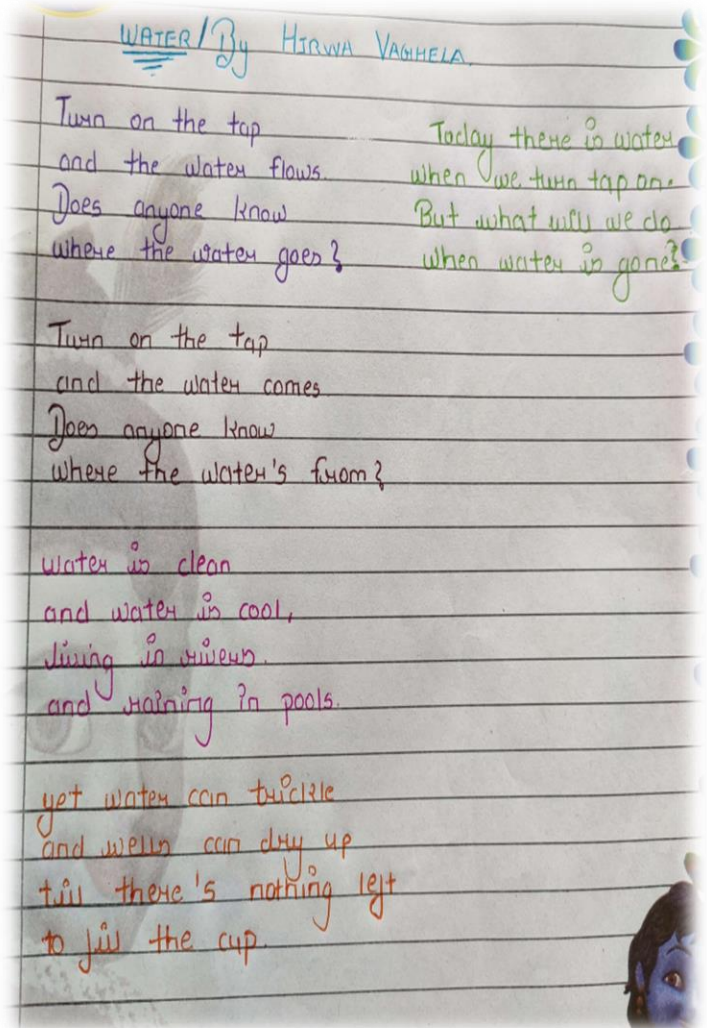 WATER / By HIRWA VAGHELA.
Turn on the tap
and the water flows.
Does anyone know
where the water goes?
Turn on the tap
and the water comes
Does anyone know
where the water's from?
water is clean
and water is cool,
living in rivers.
and raining in pools.
yet water can trickle
and wells can dry up
till there's nothing left
to fill the cup.
Today there is water
when we turn tap on.
But what will we do
when water is gone?